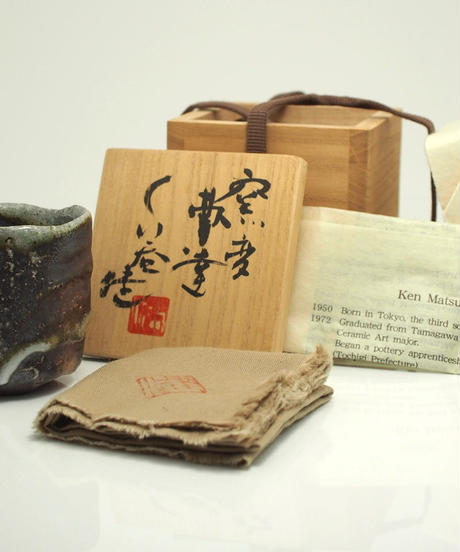 窯変
くい呑
健
Ken Matsu
1950 Born in Tokyo, the third so
1972 Graduated from Tamagawa
Ceramic Art major.
Began a pottery apprenticesh
(Tochigi Prefecture)